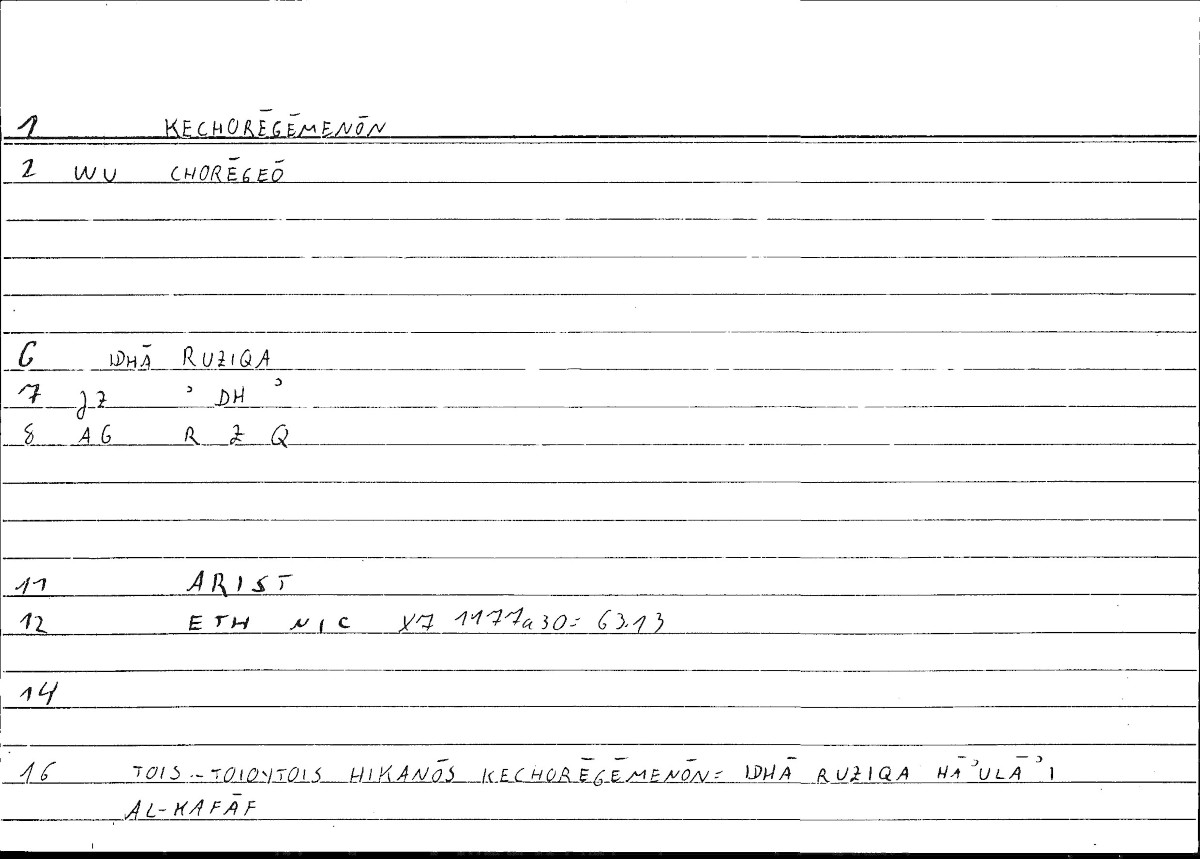 1 KECHORĒGĒMENŌN
2 WU CHORĒGEŌ
6 IDHĀ RUZIQA
7 JZ ʾ DH ʾ
8 AG R Z Q
11 ARIST
12 ETH NIC X7 1177a30= 63.13
14
16 TOIS--TOIOYTOIS HIKANŌS KECHORĒGĒMENŌN= IDHĀ RUZIQA HĀʾULĀʾI
AL-KAFĀF